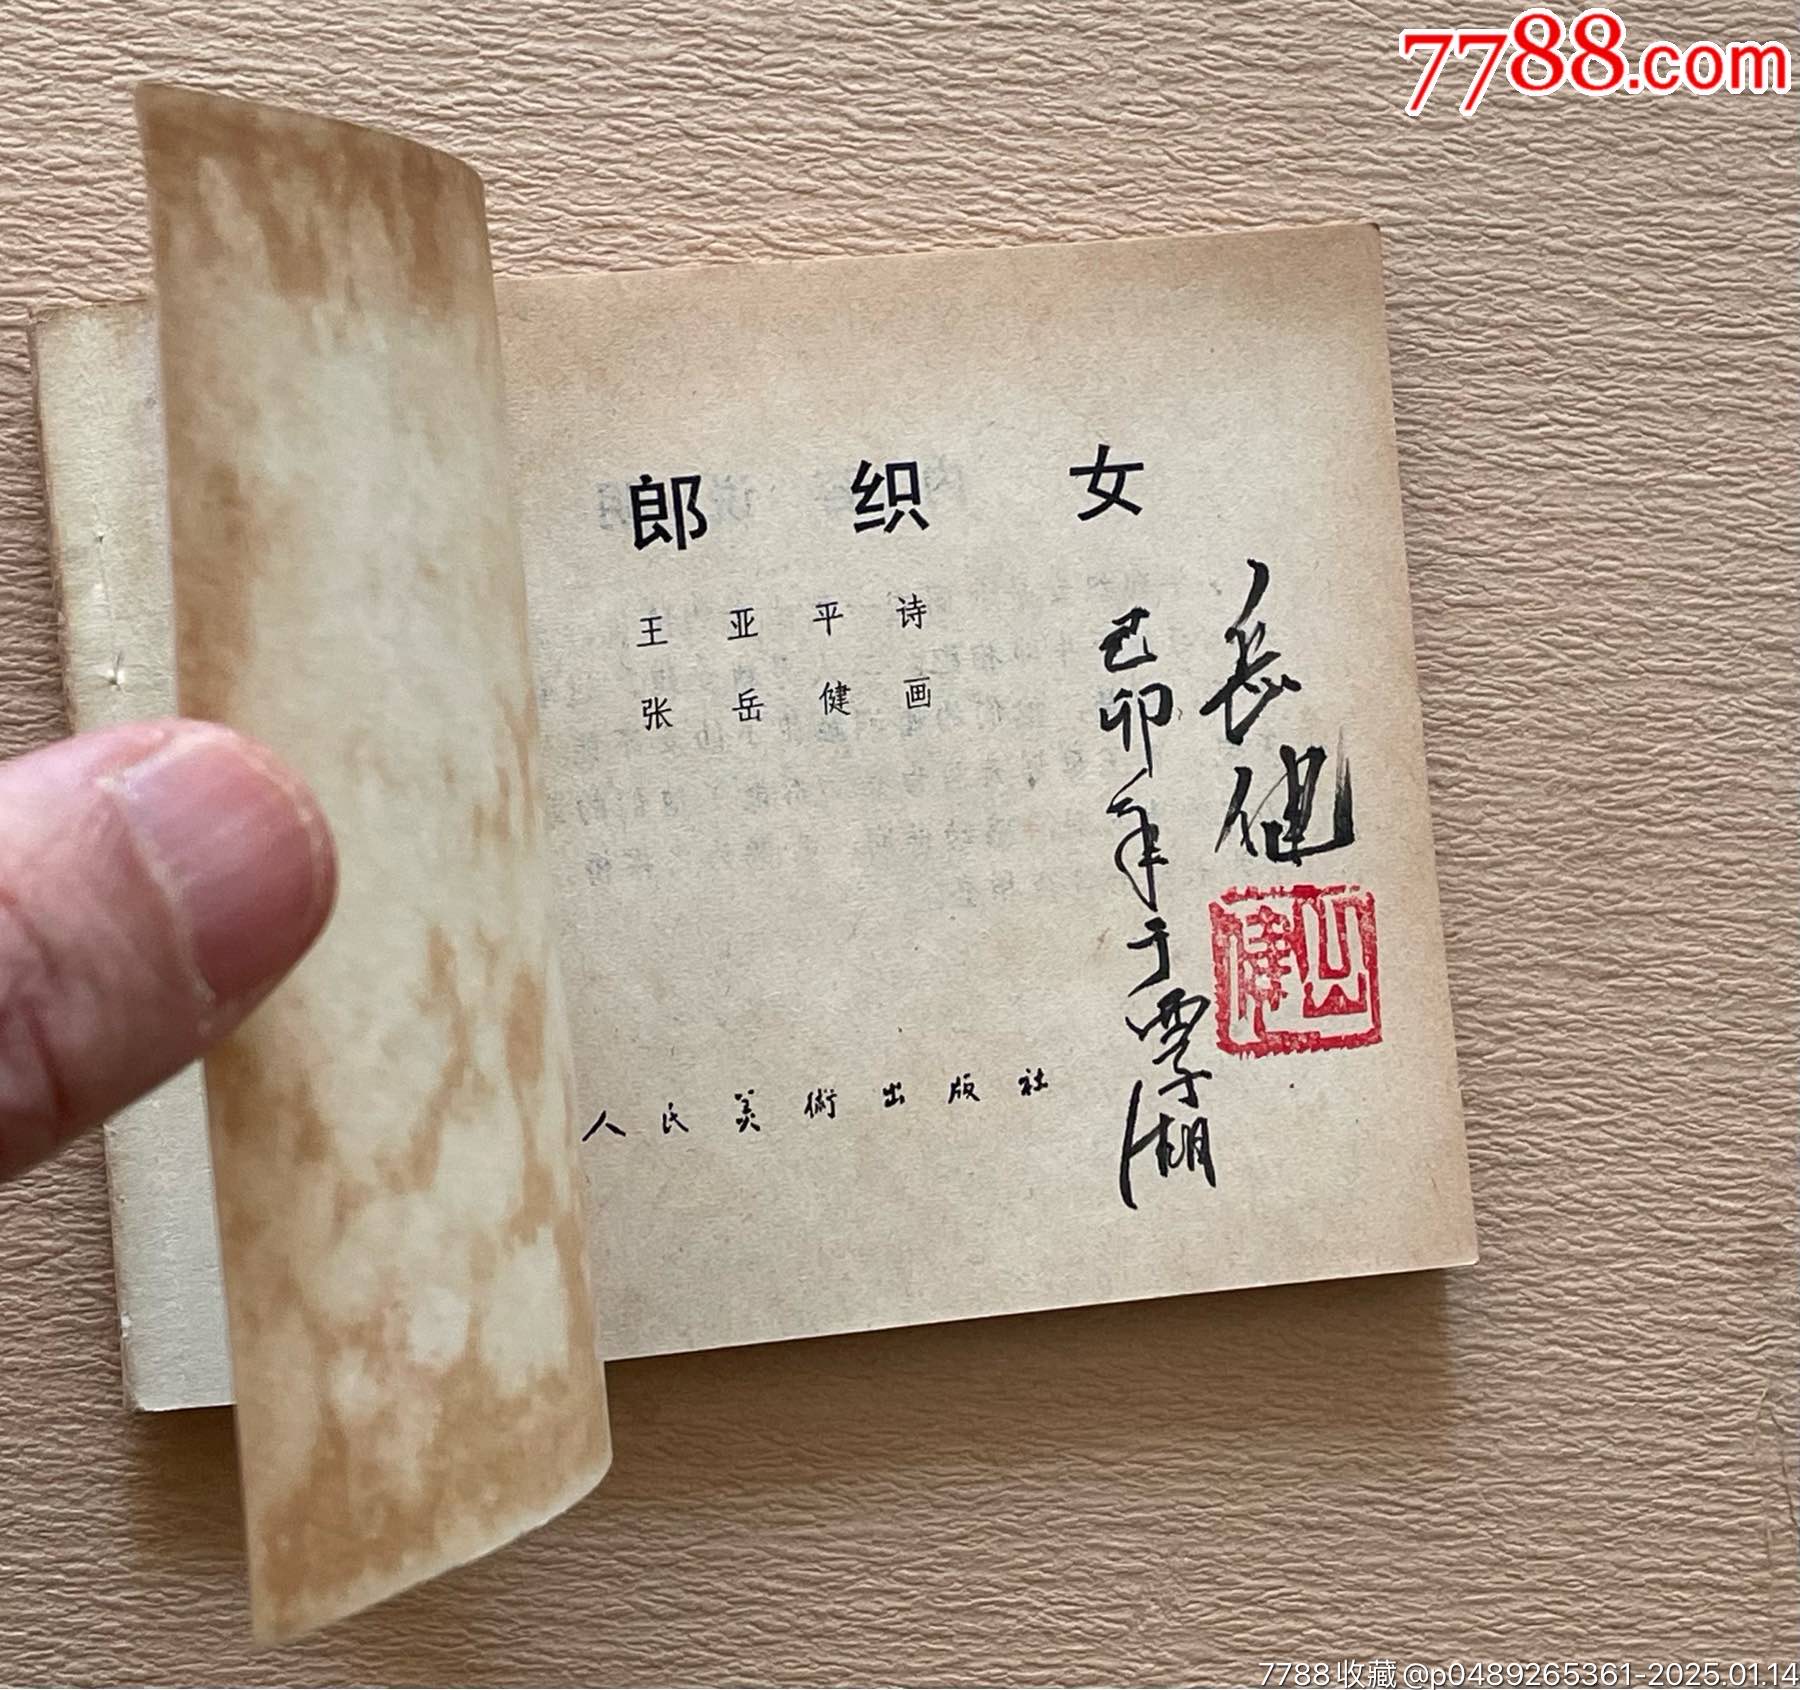 7788.com
郎织女
王亚平诗
张岳健画
岳健
己卯年于西子湖
人民美術出版社
7788收藏@p0489265361-2025.01.14